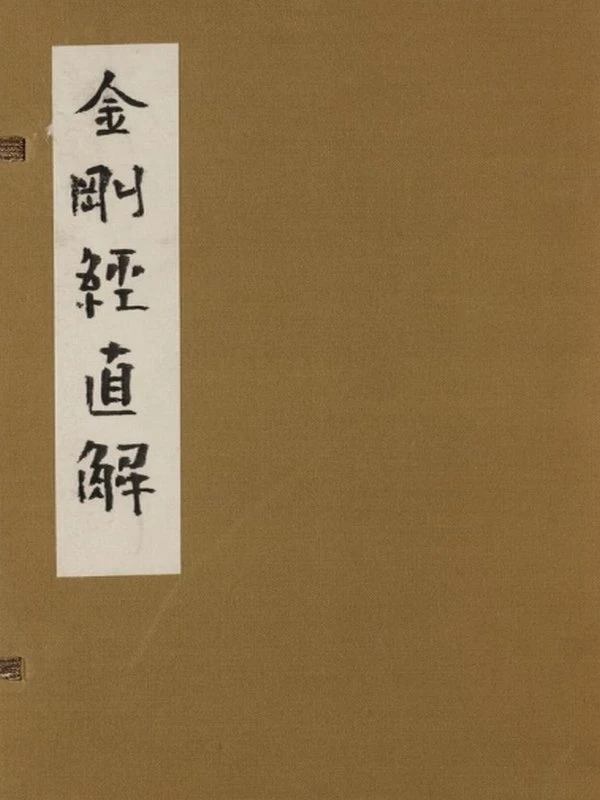 金剛經直解